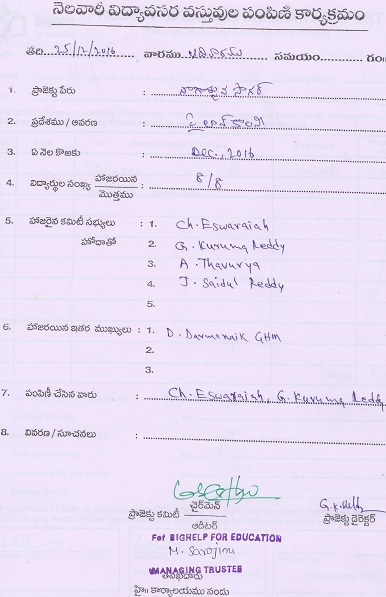 నెలవారీ విద్యావసర వస్తువుల పంపిణి కార్యక్రమం
తేది...25/12/2016 వారము ఆదివారము సమయం.................గం॥
1. ప్రాజెక్టు పేరు : నాగార్జున సాగర్
2. ప్రదేశము / ఆవరణ : పైలాన్ కాలని
3. ఏ నెల కొఱకు : DEC, 2016
4. విద్యార్థుల సంఖ్య హాజరయిన / మొత్తము : 8/8
5. హాజరైన కమిటీ సభ్యులు : 1. Ch. Eswaraiah
హోదాతో 2. G. Kuruma Reddy
3. A. Thavurya
4. J. Saidul Reddy
5.
6. హాజరయిన ఇతర ముఖ్యులు : 1. D. Darmenaik GHM
2.
3.
7. పంపిణీ చేసిన వారు : Ch. Eswaraiah, G. Kuruma Reddy
8. వివరణ / సూచనలు :
ప్రాజెక్టు కమిటీ చైర్‌మెన్ / ఆడిటర్
G.K. Reddy
ప్రాజెక్టు డైరెక్టర్
For BIGHELP FOR EDUCATION
M. Sarojini
MANAGING TRUSTEE
హై॥ కార్యాలయము నందు